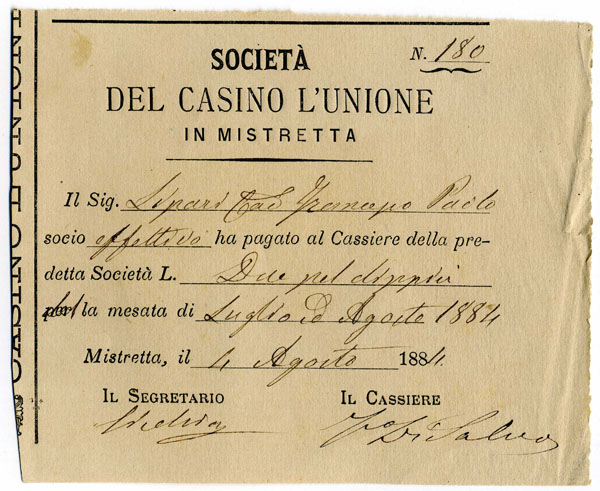 N. 180
SOCIETÀ
DEL CASINO L'UNIONE
IN MISTRETTA
Il Sig. Lipari Francesco Paolo
socio effettivo ha pagato al Cassiere della pre-
detta Società L. Due pel
la mesata di Luglio ed Agosto 1884
Mistretta, il 4 Agosto 1884.
IL SEGRETARIO IL CASSIERE
Di Salvo
CASINO L'UNION